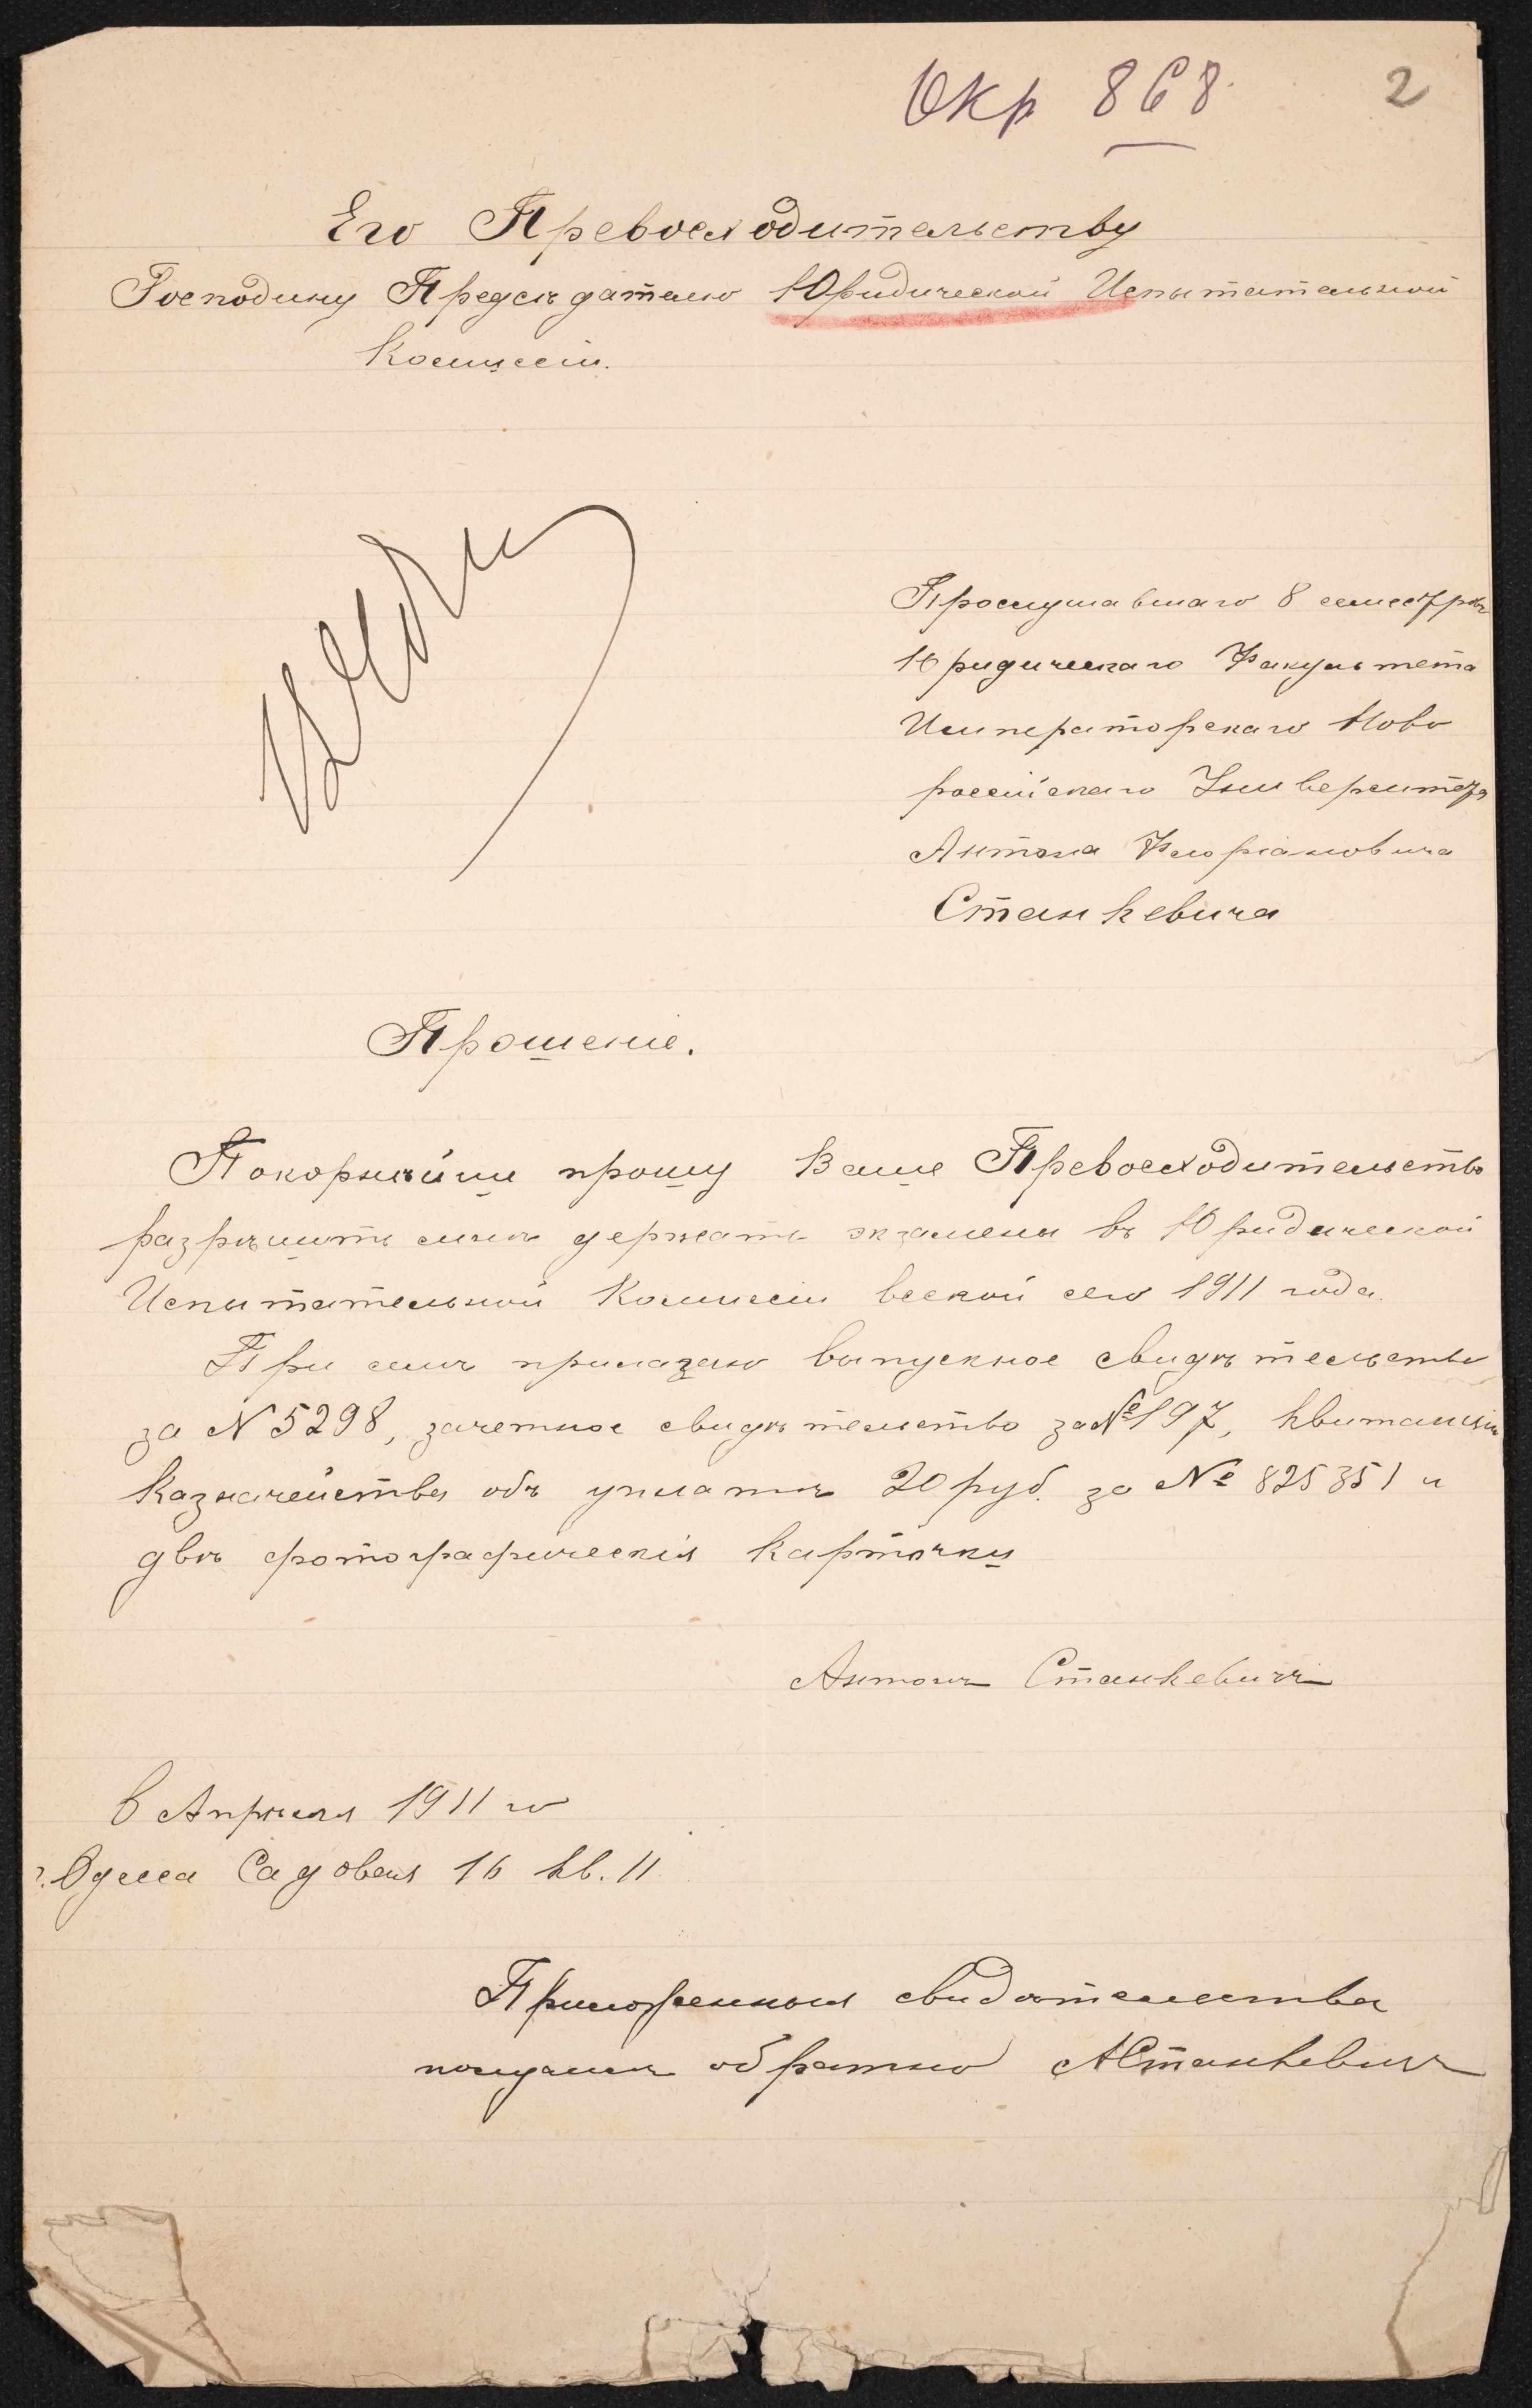 Окр 868.
2
Его Превосходительству
Господину Предсѣдателю Юридической Испытательной
Комиссіи.
Прослушавшаго 8 семестровъ
Юридическаго Факультета
Императорскаго Ново
россійскаго Университета
Антона Флоріановича
Станкевича
Прошеніе.
Покорнѣйше прошу Ваше Превосходительство
разрѣшить мнѣ держать экзамены въ Юридической
Испытательной Комиссіи весной сего 1911 года.
При семъ прилагаю выпускное свидѣтельство
за N 5298, зачетное свидѣтельство за № 197, квитанцію
Казначейства объ уплатѣ 20 руб. за № 825351 и
двѣ фотографическія карточки
Антонъ Станкевичъ
6 Апрѣля 1911 го
г. Одесса Садовая 16 кв. 11
Приложенныя свидѣтельства
получилъ обратно АСтанкевичъ